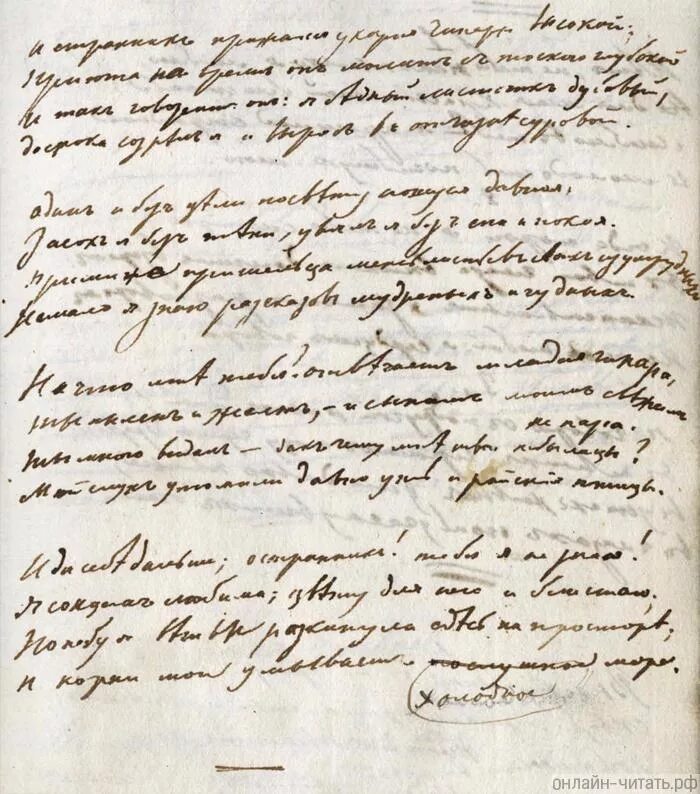 И странникъ прижался у корня чинары высокой;
Пріюта на время онъ молитъ съ тоскою глубокой
И такъ говоритъ онъ: я бѣдный листокъ дубовый,
До срока созрѣлъ я и выросъ въ отчизнѣ суровой.
Одинъ и безъ цѣли по свѣту ношуся давно я,
Засохъ я безъ тѣни, увялъ я безъ сна и покоя.
Прими же пришельца межъ листьевъ своихъ изумрудныхъ
Немало я знаю разсказовъ мудреныхъ и чудныхъ.
На что мнѣ тебя? отвѣчаетъ младая чинара,
Ты пыленъ и желтъ, – и сынамъ моимъ свѣжимъ
не пара.
Ты много видалъ – да къ чему мнѣ твои небылицы?
Мой слухъ утомили давно ужъ и райскія птицы.
Иди себѣ дальше; о странникъ! тебя я не знаю!
Я солнцемъ любима; цвѣту для него и блистаю;
По небу я вѣтви раскинула здѣсь на просторѣ,
И корни мои умываетъ послушное море.
холодное
онлайн-читать.рф